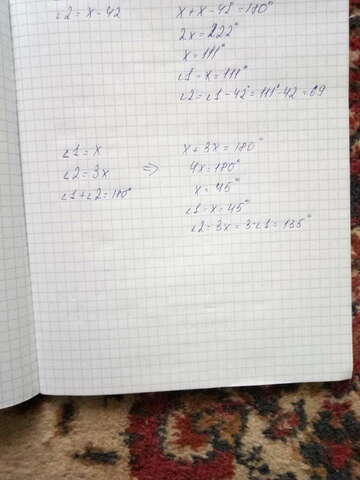 ∠2 = x - 42
x + x - 42° = 180°
2x = 222°
x = 111°
∠1 - x = 111°
∠2 = ∠1 - 42° = 111° - 42 = 69
∠1 = x
∠2 = 3x
∠1 + ∠2 = 180°
⇒
x + 3x = 180°
4x = 180°
x = 45°
∠1 - x = 45°
∠2 - 3x = 3·∠1 = 135°